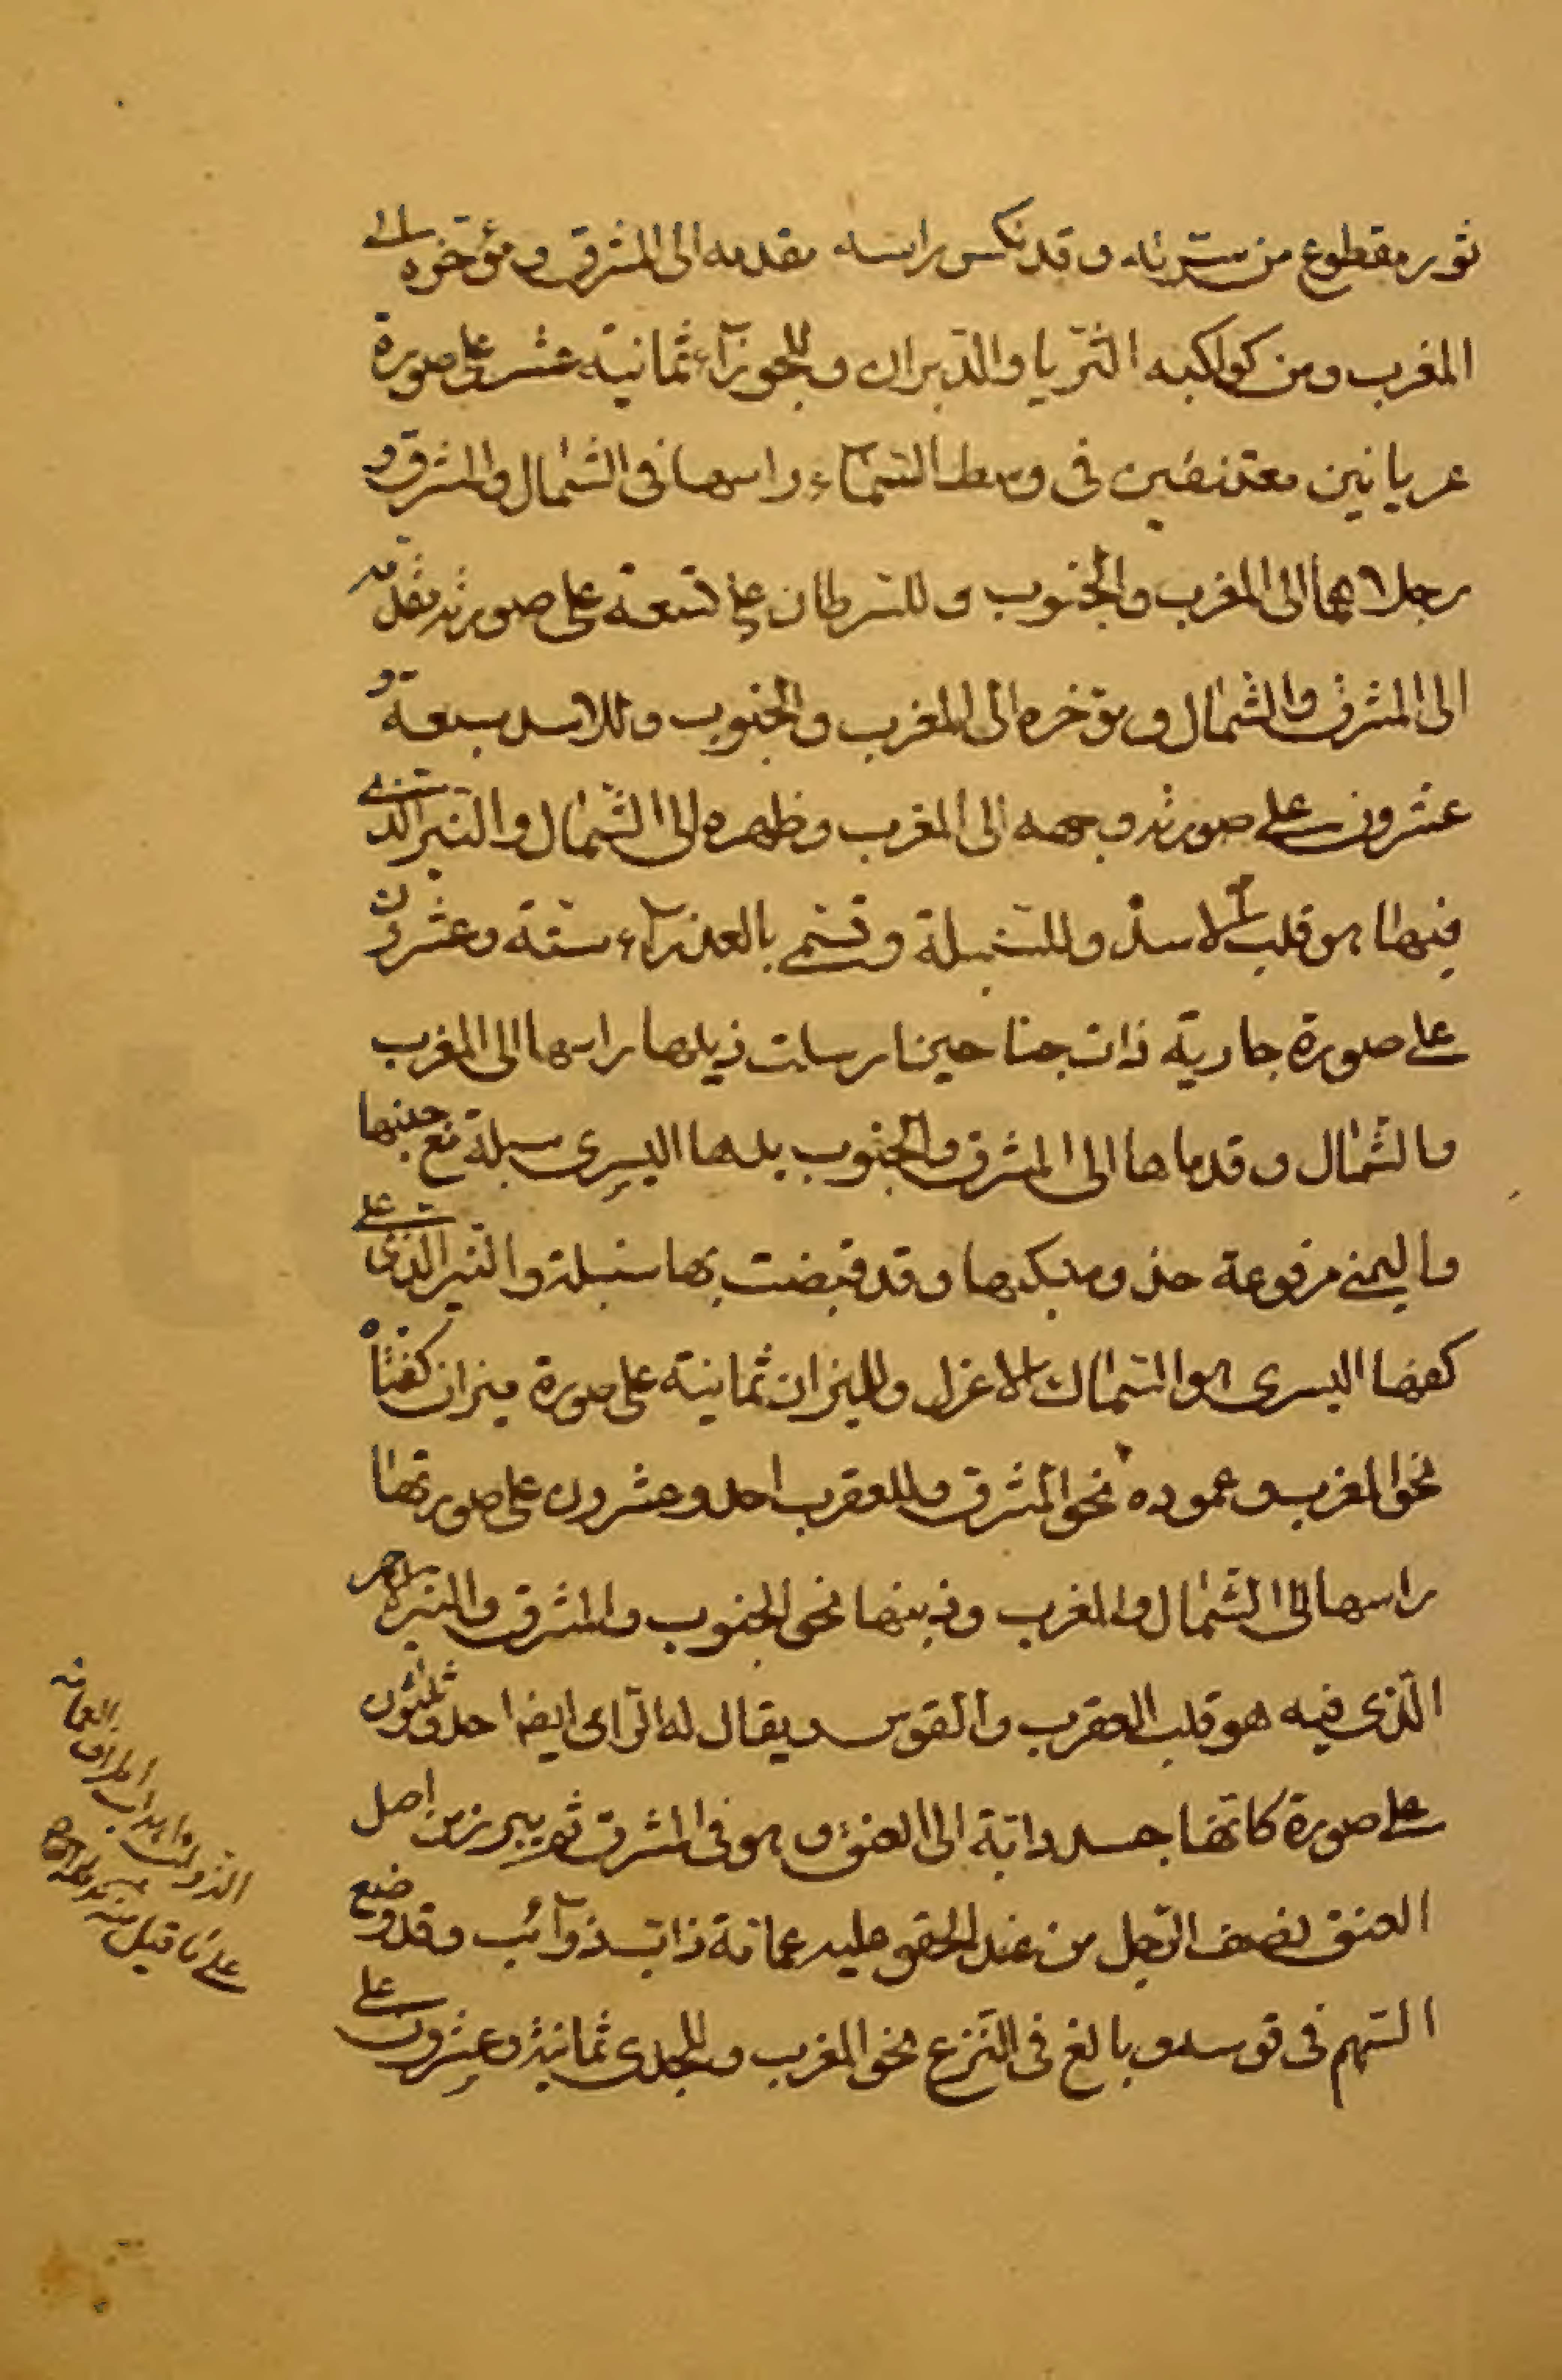 ثور مقطوع من سترته وقد نكس راسه مقدمه الى المشرق ومؤخره الى
المغرب ومن كواكبه الثريا والدبران وللجوزآء ثمانية عشر على صورة
عريانين معتنقين في وسط السمآء راسهما في الشمال والمشرق و
رجلاهما الى المغرب والجنوب وللسرطان تسعة على صورته مقدمه
الى المشرق والشمال ومؤخره الى المغرب والجنوب وللاسد سبعة و
عشرون على صورته وجهه الى المغرب وظهره الى الشمال والنير الذي
فيها هو قلب الاسد وللسنبلة وتسمى بالعذرآء ستة وعشرون
على صورة جارية ذات جناحين ارسلت ذيلها راسها الى المغرب
والشمال وقدماها الى المشرق والجنوب يدها اليسرى مسبلة مع جنبها
واليمنى مرفوعة حذو منكبها وقد قبضت بها سنبلة والنير الذي على
كفها اليسرى هو السماك الاعزل وللميزان ثمانية على صورة ميزان كفتاه
نحو المغرب وعموده نحو المشرق وللعقرب احد وعشرون على صورتها
راسها الى الشمال والمغرب وذنبها نحو الجنوب والمشرق والنير الاحمر
الذي فيه هو قلب العقرب والقوس ويقال له الرامي ايضا احد وثلثون
على صورة كانها جسد دابة الى العنق وهو في المشرق ثم يبرز من اصل
العنق نصف الرجل من عند الحقو عليه عمامة ذات ذوآئب وقد وضع
السهم في قوسه وبالغ في النزع نحو المغرب وللجدي ثمانية وعشرون على
العمامه
اطراف
على ما قيل منه